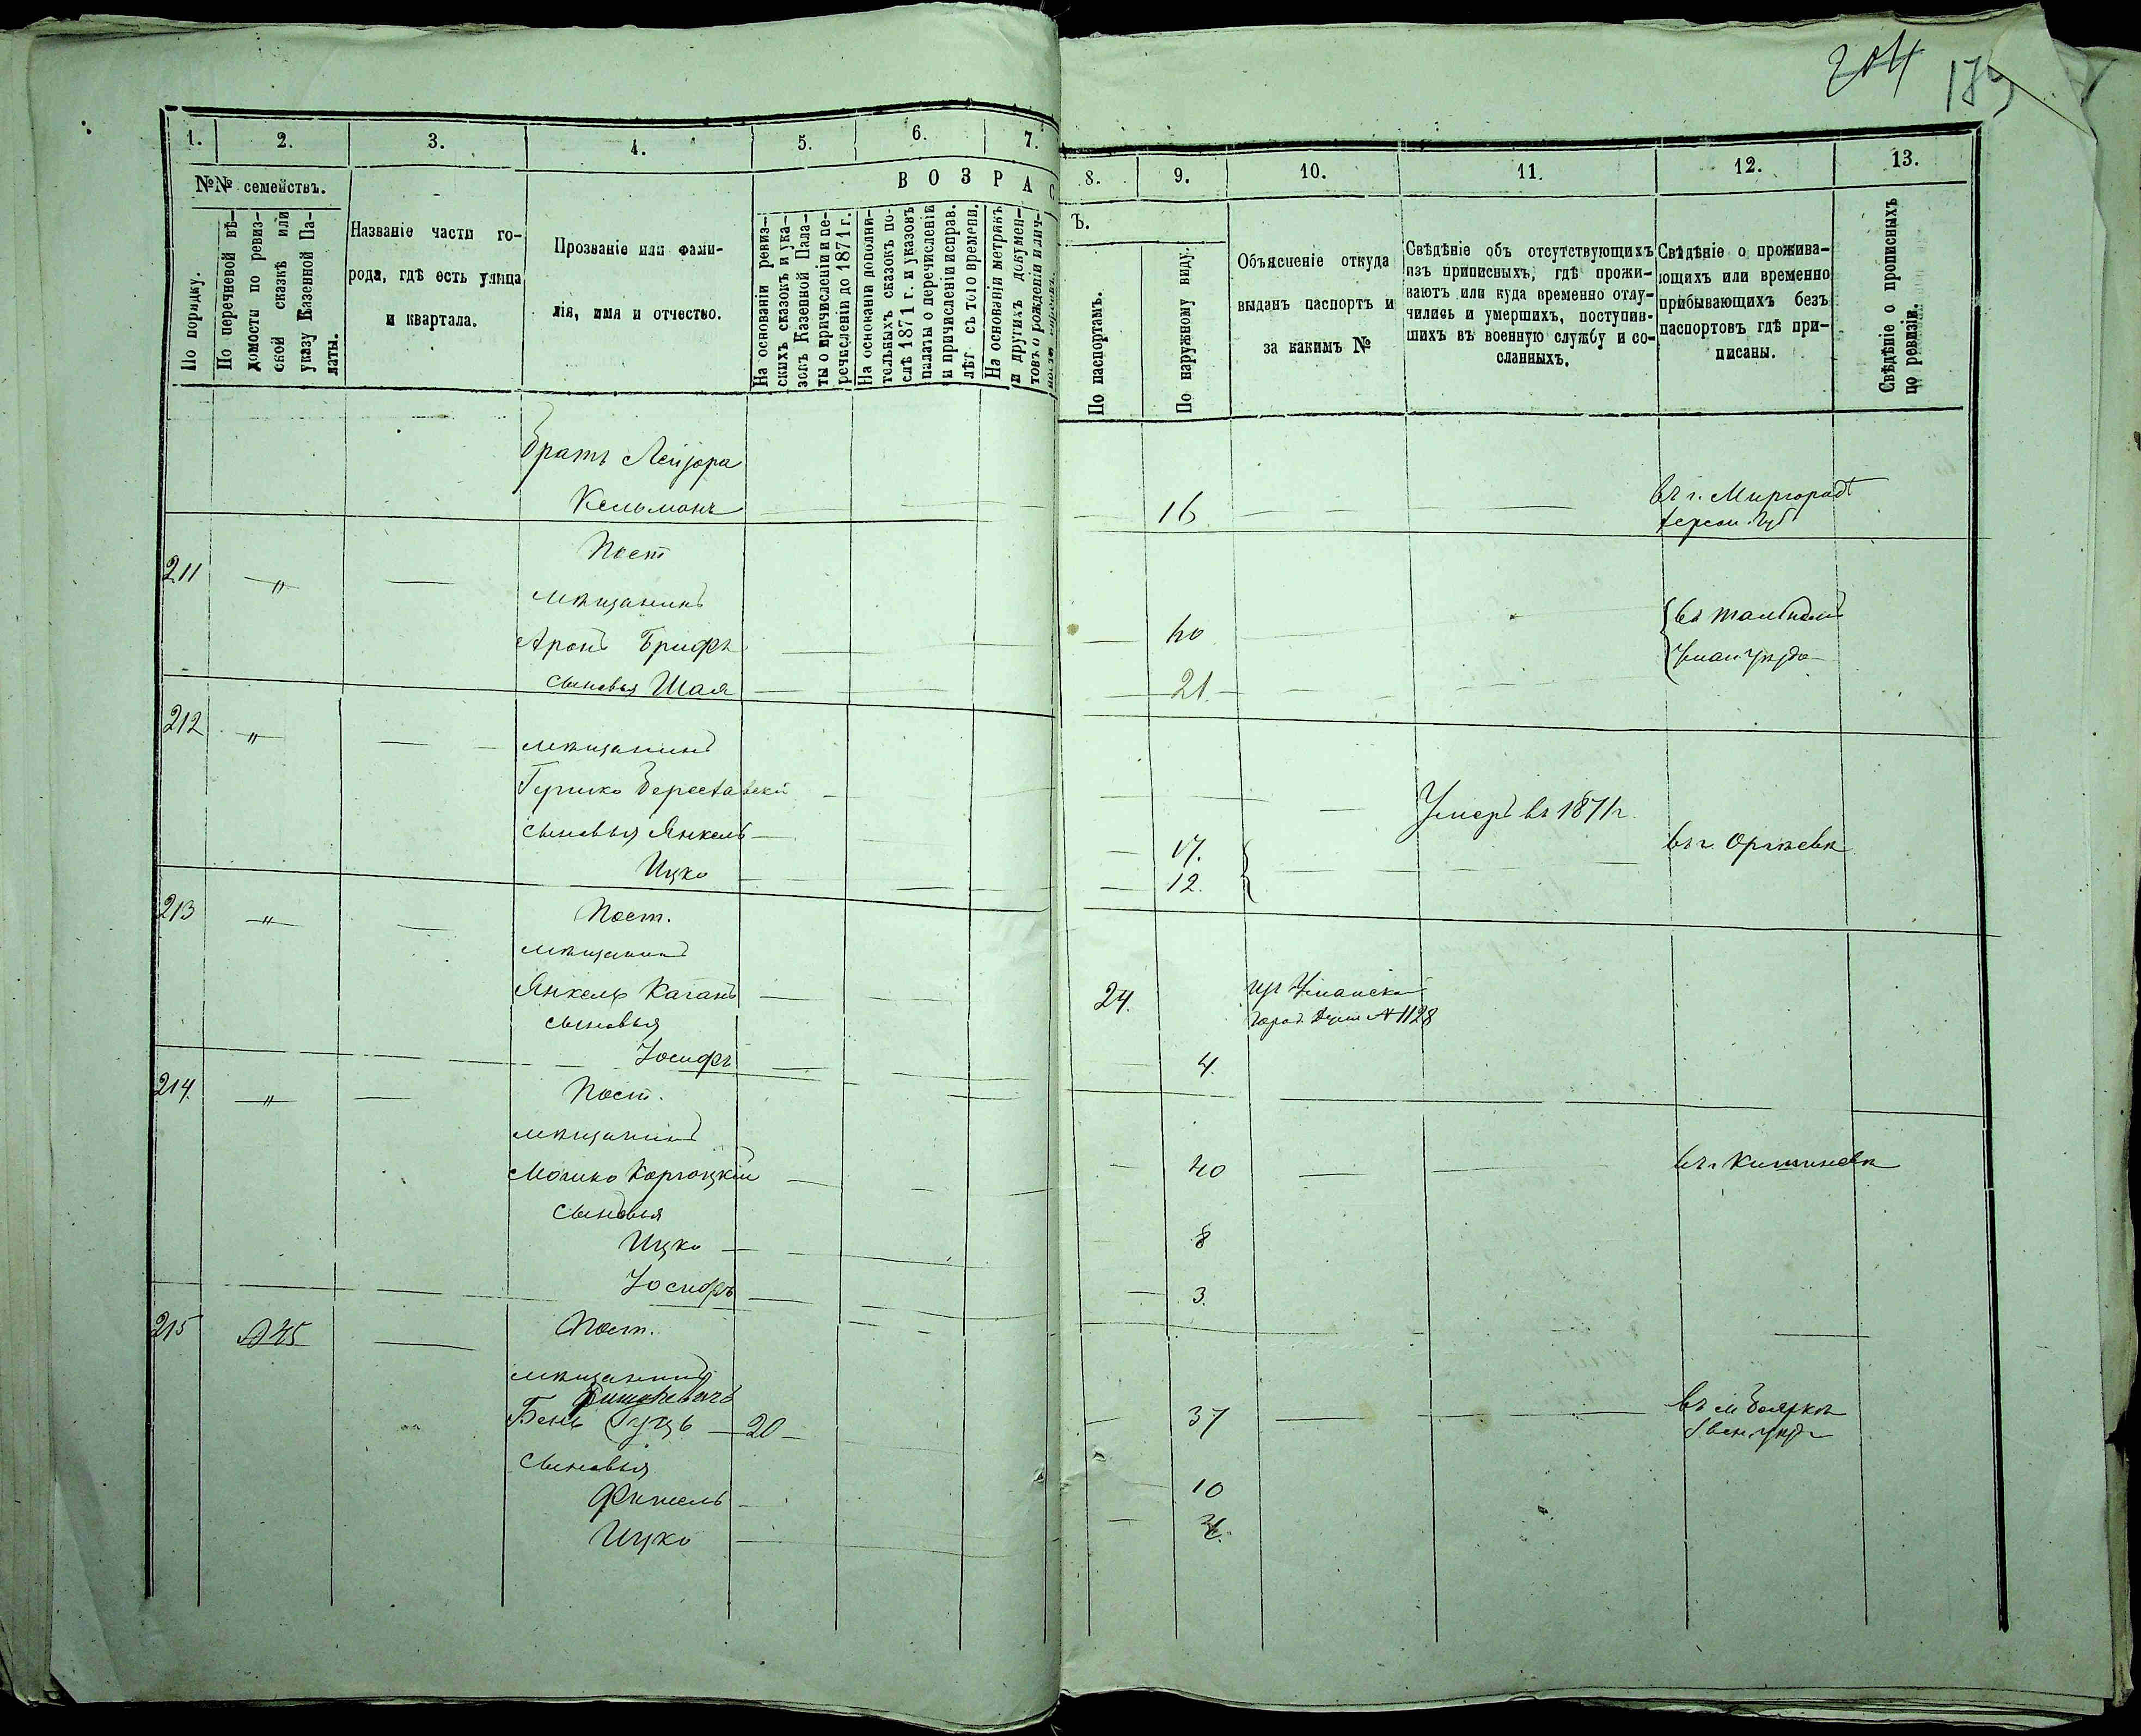 204
179
1. 2. 3. 4. 5. 6. 7. 8. 9. 10. 11. 12. 13.
№№ семействъ.
По порядку.
По перечневой вѣ-
домости по ревиз-
ской сказкѣ или
указу Казенной Па-
латы.
Названіе части го-
рода, гдѣ есть улица
и квартала.
Прозваніе или фами-
лія, имя и отчество.
ВОЗРАС
Ъ.
На основаніи ревиз-
скихъ сказокъ и ука-
зовъ Казенной Пала-
ты о причисленіи и пе-
речисленіи до 1871 г.
На основаніи дополни-
тельныхъ сказокъ по-
слѣ 1871 г. и указовъ
палаты о перечисленіи
и причисленіи исправ.
лѣт съ того времени.
На основаніи метрикъ
и другихъ докумен-
товъ о рожденіи и лич-
По паспортамъ.
По наружному виду.
Объясненіе откуда
выданъ паспортъ и
за какимъ №
Свѣдѣніе объ отсутствующихъ
изъ приписныхъ, гдѣ прожи-
ваютъ или куда временно отлу-
чились и умершихъ, поступив-
шихъ въ военную службу и со-
сланныхъ.
Свѣдѣніе о прожива-
ющихъ или временно
прибывающихъ безъ
паспортовъ гдѣ при-
писаны.
Свѣдѣніе о прописныхъ
по ревизіи.
Братъ Лейзора
Кельманъ — 16 — въ г. Миргородѣ
херсон. губ
211 " — Пост
мѣщанинъ
Аронъ Брифъ — 40
Уман уѣзда
сыновья Шая — 21
212 " — мѣщанинъ
Гершко Береставскі — Умеръ въ 1871 г.
сыновья Янкель — 17. въ г. Оргѣевѣ
Ицко — 12.
213 " — Пост.
мѣщанинъ
Янкель Каганъ — 24. изъ Уманской
город. Думы № 1128
сыновья
Іосифъ — 4.
214. " — Пост.
мѣщанинъ
Мошко — 40 — въ г. Кишиневѣ
сыновья
Ицко — 8
Іосифъ — 3.
215 — Пост.
мѣщанинъ
Бень — 20 — 37 — въ м. Бояркѣ
Звен. уѣзд
сыновья
Фишель — 10
Ицко —